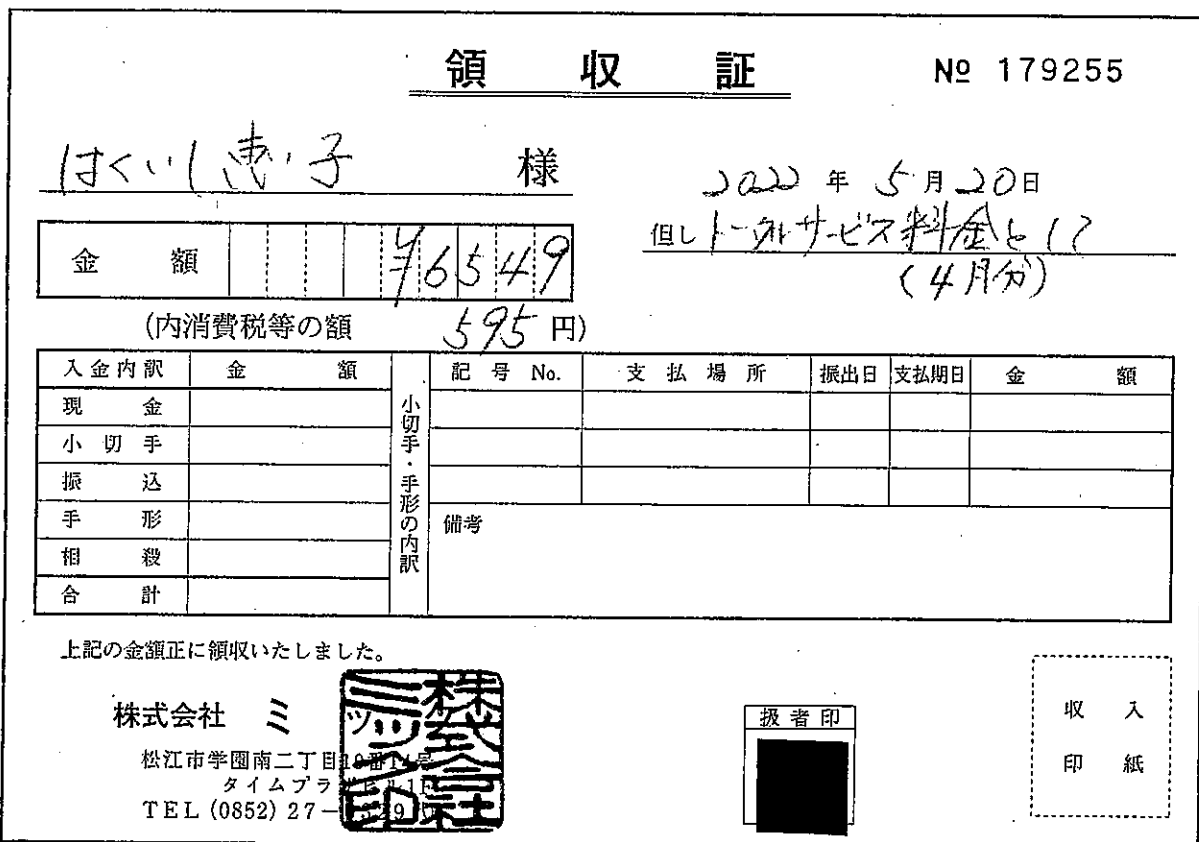 領収証
№ 179255
はくいし恵子 様
2022年5月20日
但しトータルサービス料金として
(4月分)
金額 ¥6549
(内消費税等の額 595円)
入金内訳 金額
現金
小切手
振込
手形
相殺
合計
小切手・手形の内訳
記号No. 支払場所 振出日 支払期日 金額
備考
上記の金額正に領収いたしました。
株式会社 ミック
株式会社ミック印
松江市学園南二丁目10番14号
タイムプラザビル1F
TEL (0852) 27-
扱者印
収入
印紙